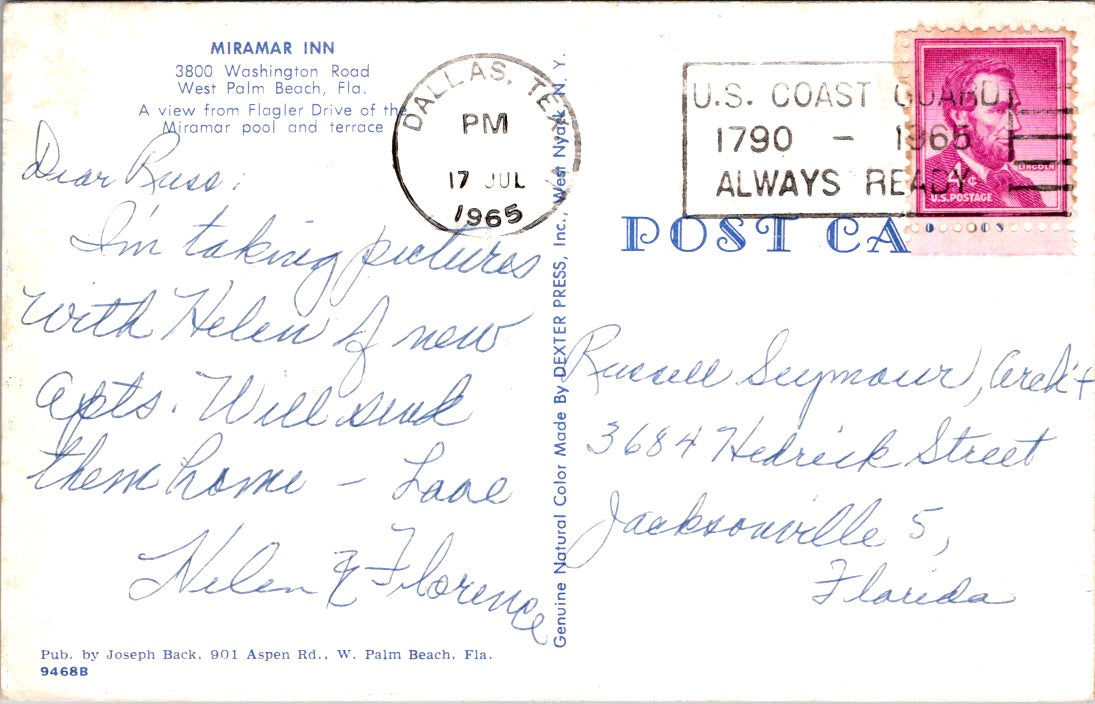 MIRAMAR INN
3800 Washington Road
West Palm Beach, Fla.
A view from Flagler Drive of the
Miramar pool and terrace
Dear Russ:
I'm taking pictures
with Helen of new
apts. Will send
them home - Love
Helen & Florence
Pub. by Joseph Back, 901 Aspen Rd., W. Palm Beach, Fla.
9468B
DALLAS, TEX
PM
17 JUL
1965
Genuine Natural Color Made By DEXTER PRESS, Inc., West Nyack, N. Y.
U.S. COAST GUARD
1790 - 1965
ALWAYS READY
LINCOLN
4¢
U.S. POSTAGE
POST CA
Russell Seymour, Arch't
3684 Hedrick Street
Jacksonville 5,
Florida